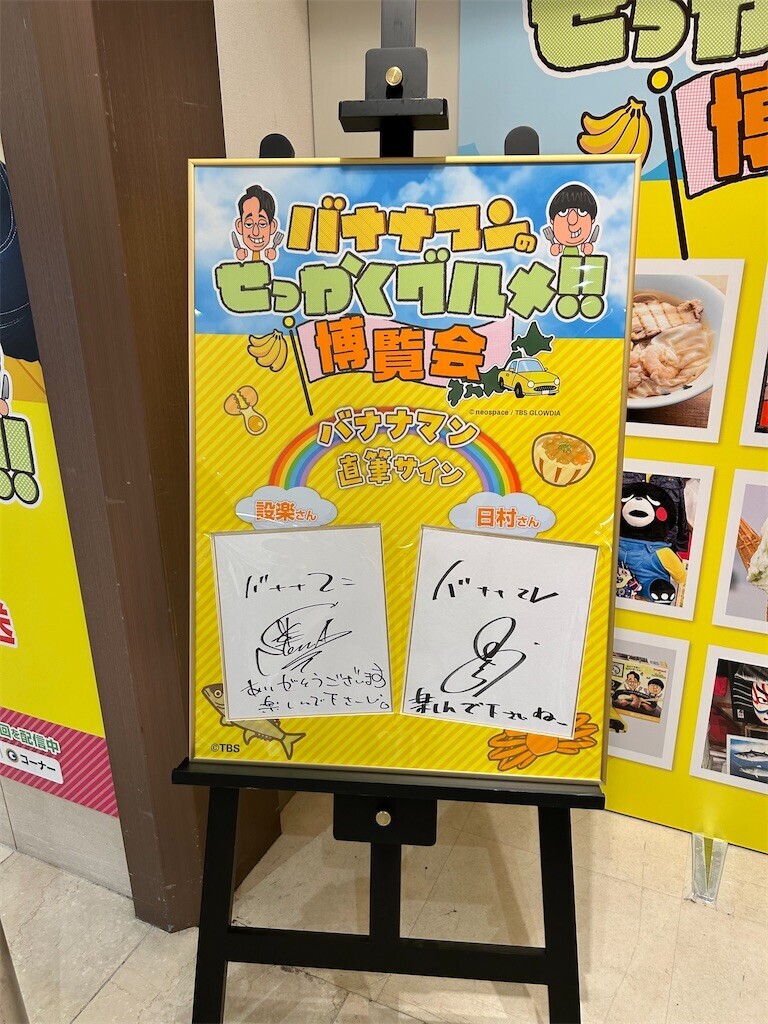 バナナマンの
せっかくグルメ!!
博覧会
©neospace / TBS GLOWDIA
バナナマン
直筆サイン
設楽さん
日村さん
バナナマン
ありがとうございます
楽しんで下さーい。
バナナマン
楽しんで下さいねー
©TBS
せっか
博
!!
送
回を配信中
コーナー